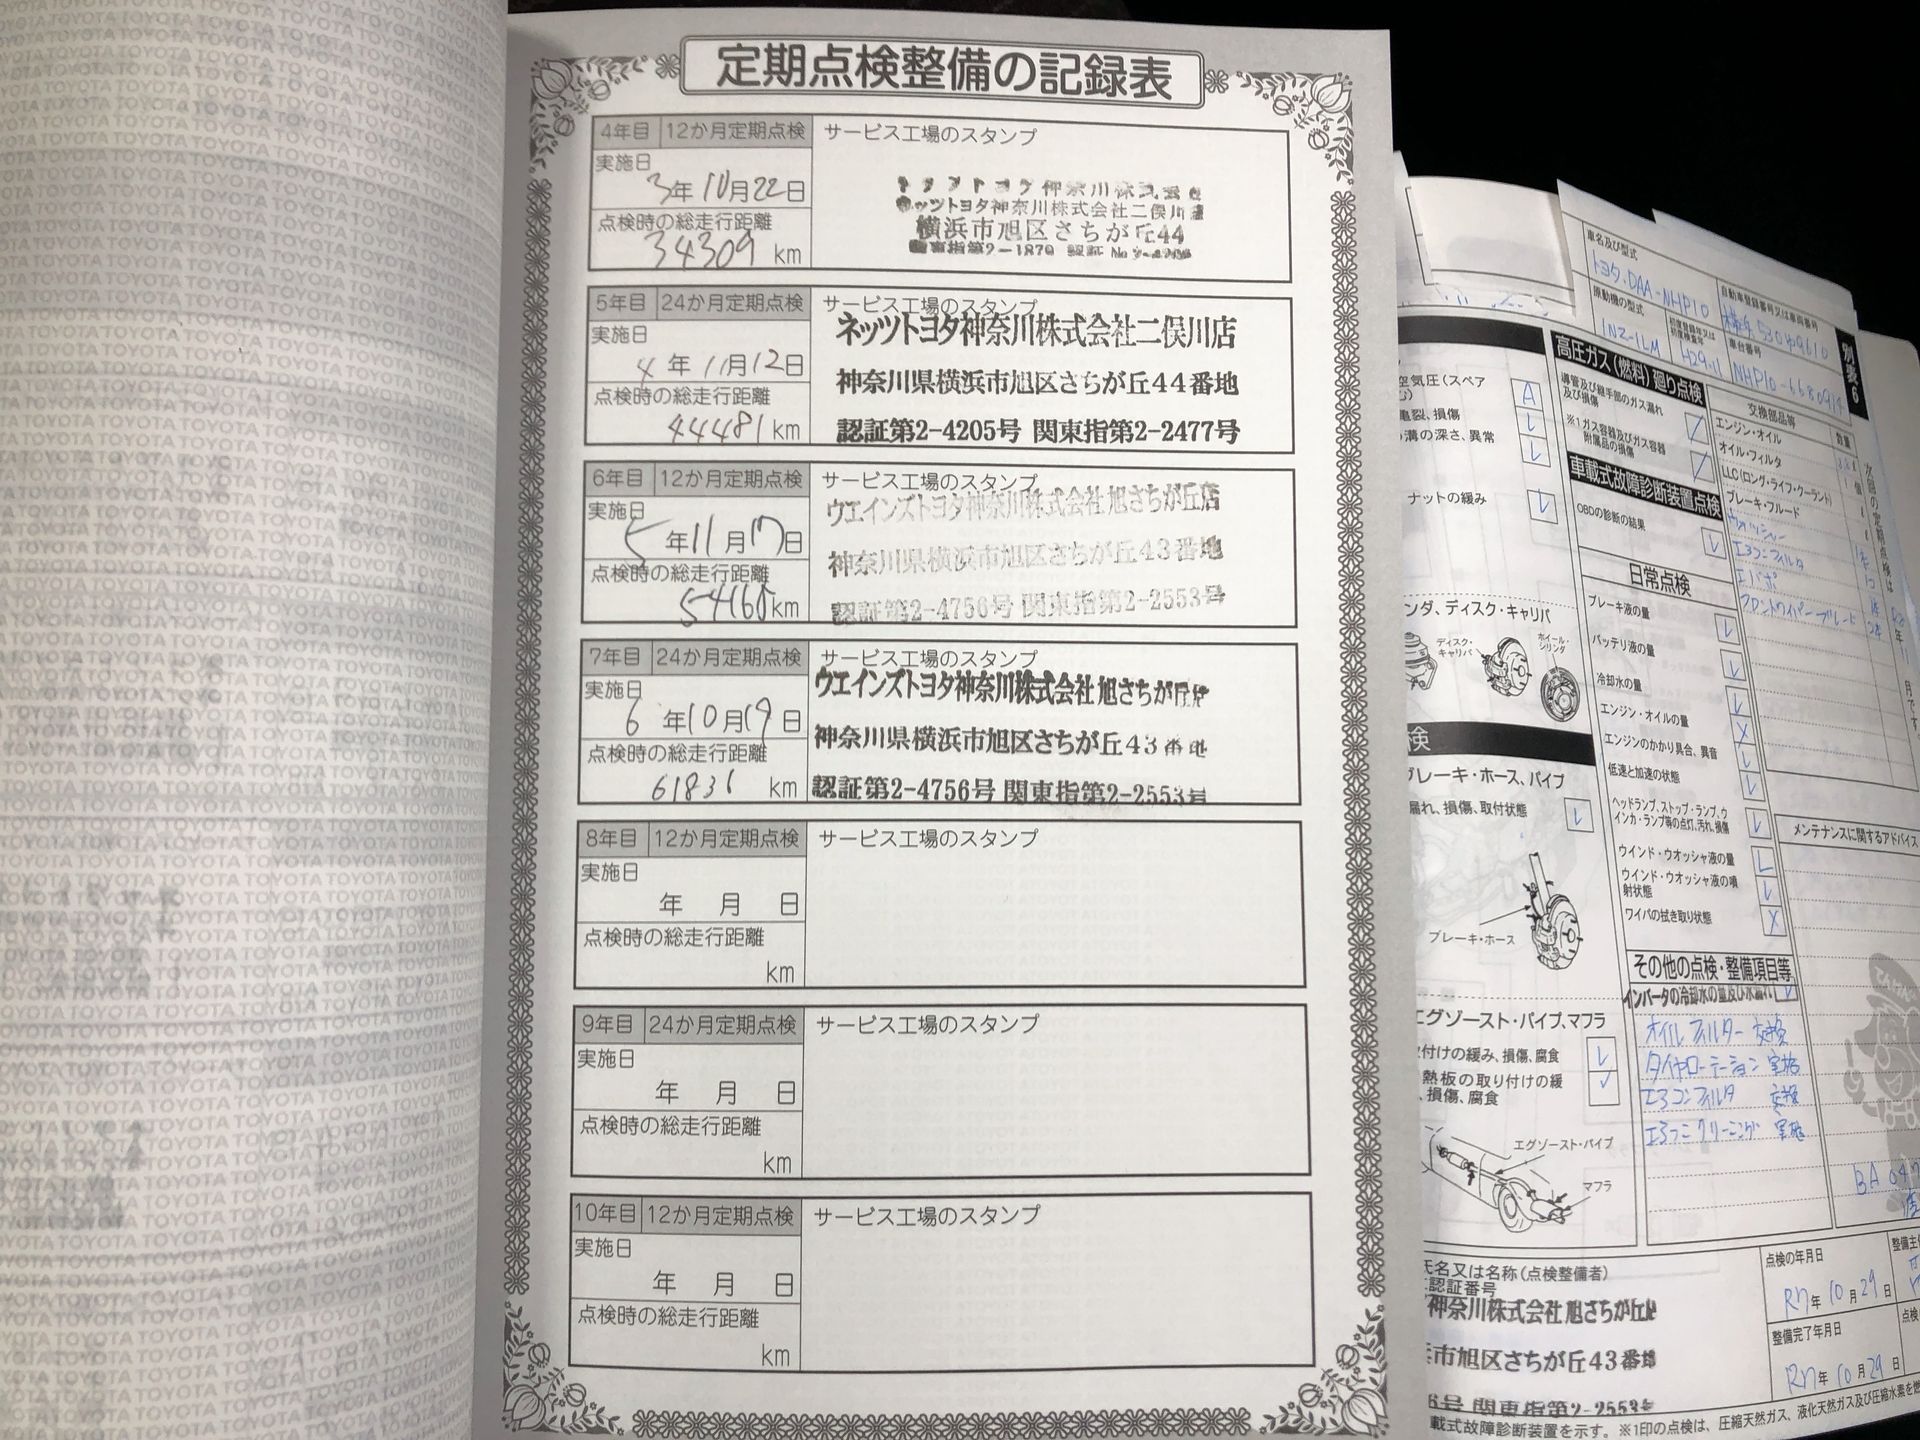 定期点検整備の記録表
4年目 12か月定期点検 サービス工場のスタンプ
実施日
3年10月22日
点検時の総走行距離
34309 km
ネッツトヨタ神奈川株式会社二俣川店
横浜市旭区さちが丘44
5年目 24か月定期点検 サービス工場のスタンプ
実施日
4年11月12日
点検時の総走行距離
44481 km
ネッツトヨタ神奈川株式会社二俣川店
神奈川県横浜市旭区さちが丘44番地
認証第2-4205号 関東指第2-2477号
6年目 12か月定期点検 サービス工場のスタンプ
実施日
5年11月17日
点検時の総走行距離
km
ウエインズトヨタ神奈川株式会社 旭さちが丘店
神奈川県横浜市旭区さちが丘43番地
認証第2-4756号 関東指第2-2553号
7年目 24か月定期点検 サービス工場のスタンプ
実施日
6年10月19日
点検時の総走行距離
61831 km
ウエインズトヨタ神奈川株式会社 旭さちが丘店
神奈川県横浜市旭区さちが丘43番地
認証第2-4756号 関東指第2-2553号
8年目 12か月定期点検 サービス工場のスタンプ
実施日
年 月 日
点検時の総走行距離
km
9年目 24か月定期点検 サービス工場のスタンプ
実施日
年 月 日
点検時の総走行距離
km
10年目 12か月定期点検 サービス工場のスタンプ
実施日
年 月 日
点検時の総走行距離
km
別表6
車名及び型式
トヨタ.DAA-NHP10
自動車登録番号又は車両番号
原動機の型式
1NZ-1LM
初度登録年又は
初度検査年
H29.11
車台番号
NHP10-6680914
空気圧(スペア
A
亀裂、損傷
溝の深さ、異常
ナットの緩み
ディスク・キャリパ
ディスク・
キャリパ
ホイール・
シリンダ
ブレーキ・ホース、パイプ
漏れ、損傷、取付状態
ブレーキ・ホース
エグゾースト・パイプ、マフラ
取付けの緩み、損傷、腐食
熱板の取り付けの緩
、損傷、腐食
エグゾースト・パイプ
マフラ
高圧ガス(燃料)廻り点検
導管及び継手部のガス漏れ
及び損傷
※1ガス容器及びガス容器
附属品の損傷
車載式故障診断装置点検
OBDの診断の結果
日常点検
ブレーキ液の量
バッテリ液の量
冷却水の量
エンジン・オイルの量
エンジンのかかり具合、異音
低速と加速の状態
ヘッドランプ、ストップ・ランプ、ウ
インカ・ランプ等の点灯、汚れ、損傷
ウインド・ウオッシャ液の量
ウインド・ウオッシャ液の噴
射状態
ワイパの拭き取り状態
その他の点検・整備項目等
インバータの冷却水の量及び水漏れ
オイルフィルター 交換
タイヤローテーション 実施
エアコンフィルタ 交換
エアコンクリーニング 実施
交換部品等 数量
エンジン・オイル
オイル・フィルタ
LLC(ロング・ライフ・クーラント)
ブレーキ・フルード
ウォッシャー
エアコンフィルタ
エバポ
フロントワイパーブレード
次回の定期点検は
年
月です。
メンテナンスに関するアドバイス
氏名又は名称(点検整備者)
認証番号
神奈川株式会社 旭さちが丘店
市旭区さちが丘43番地
号 関東指第2-2553号
点検の年月日
R7年10月29日
整備完了年月日
R7年10月29日
載式故障診断装置を示す。※1印の点検は、圧縮天然ガス、液化天然ガス及び圧縮水素を燃